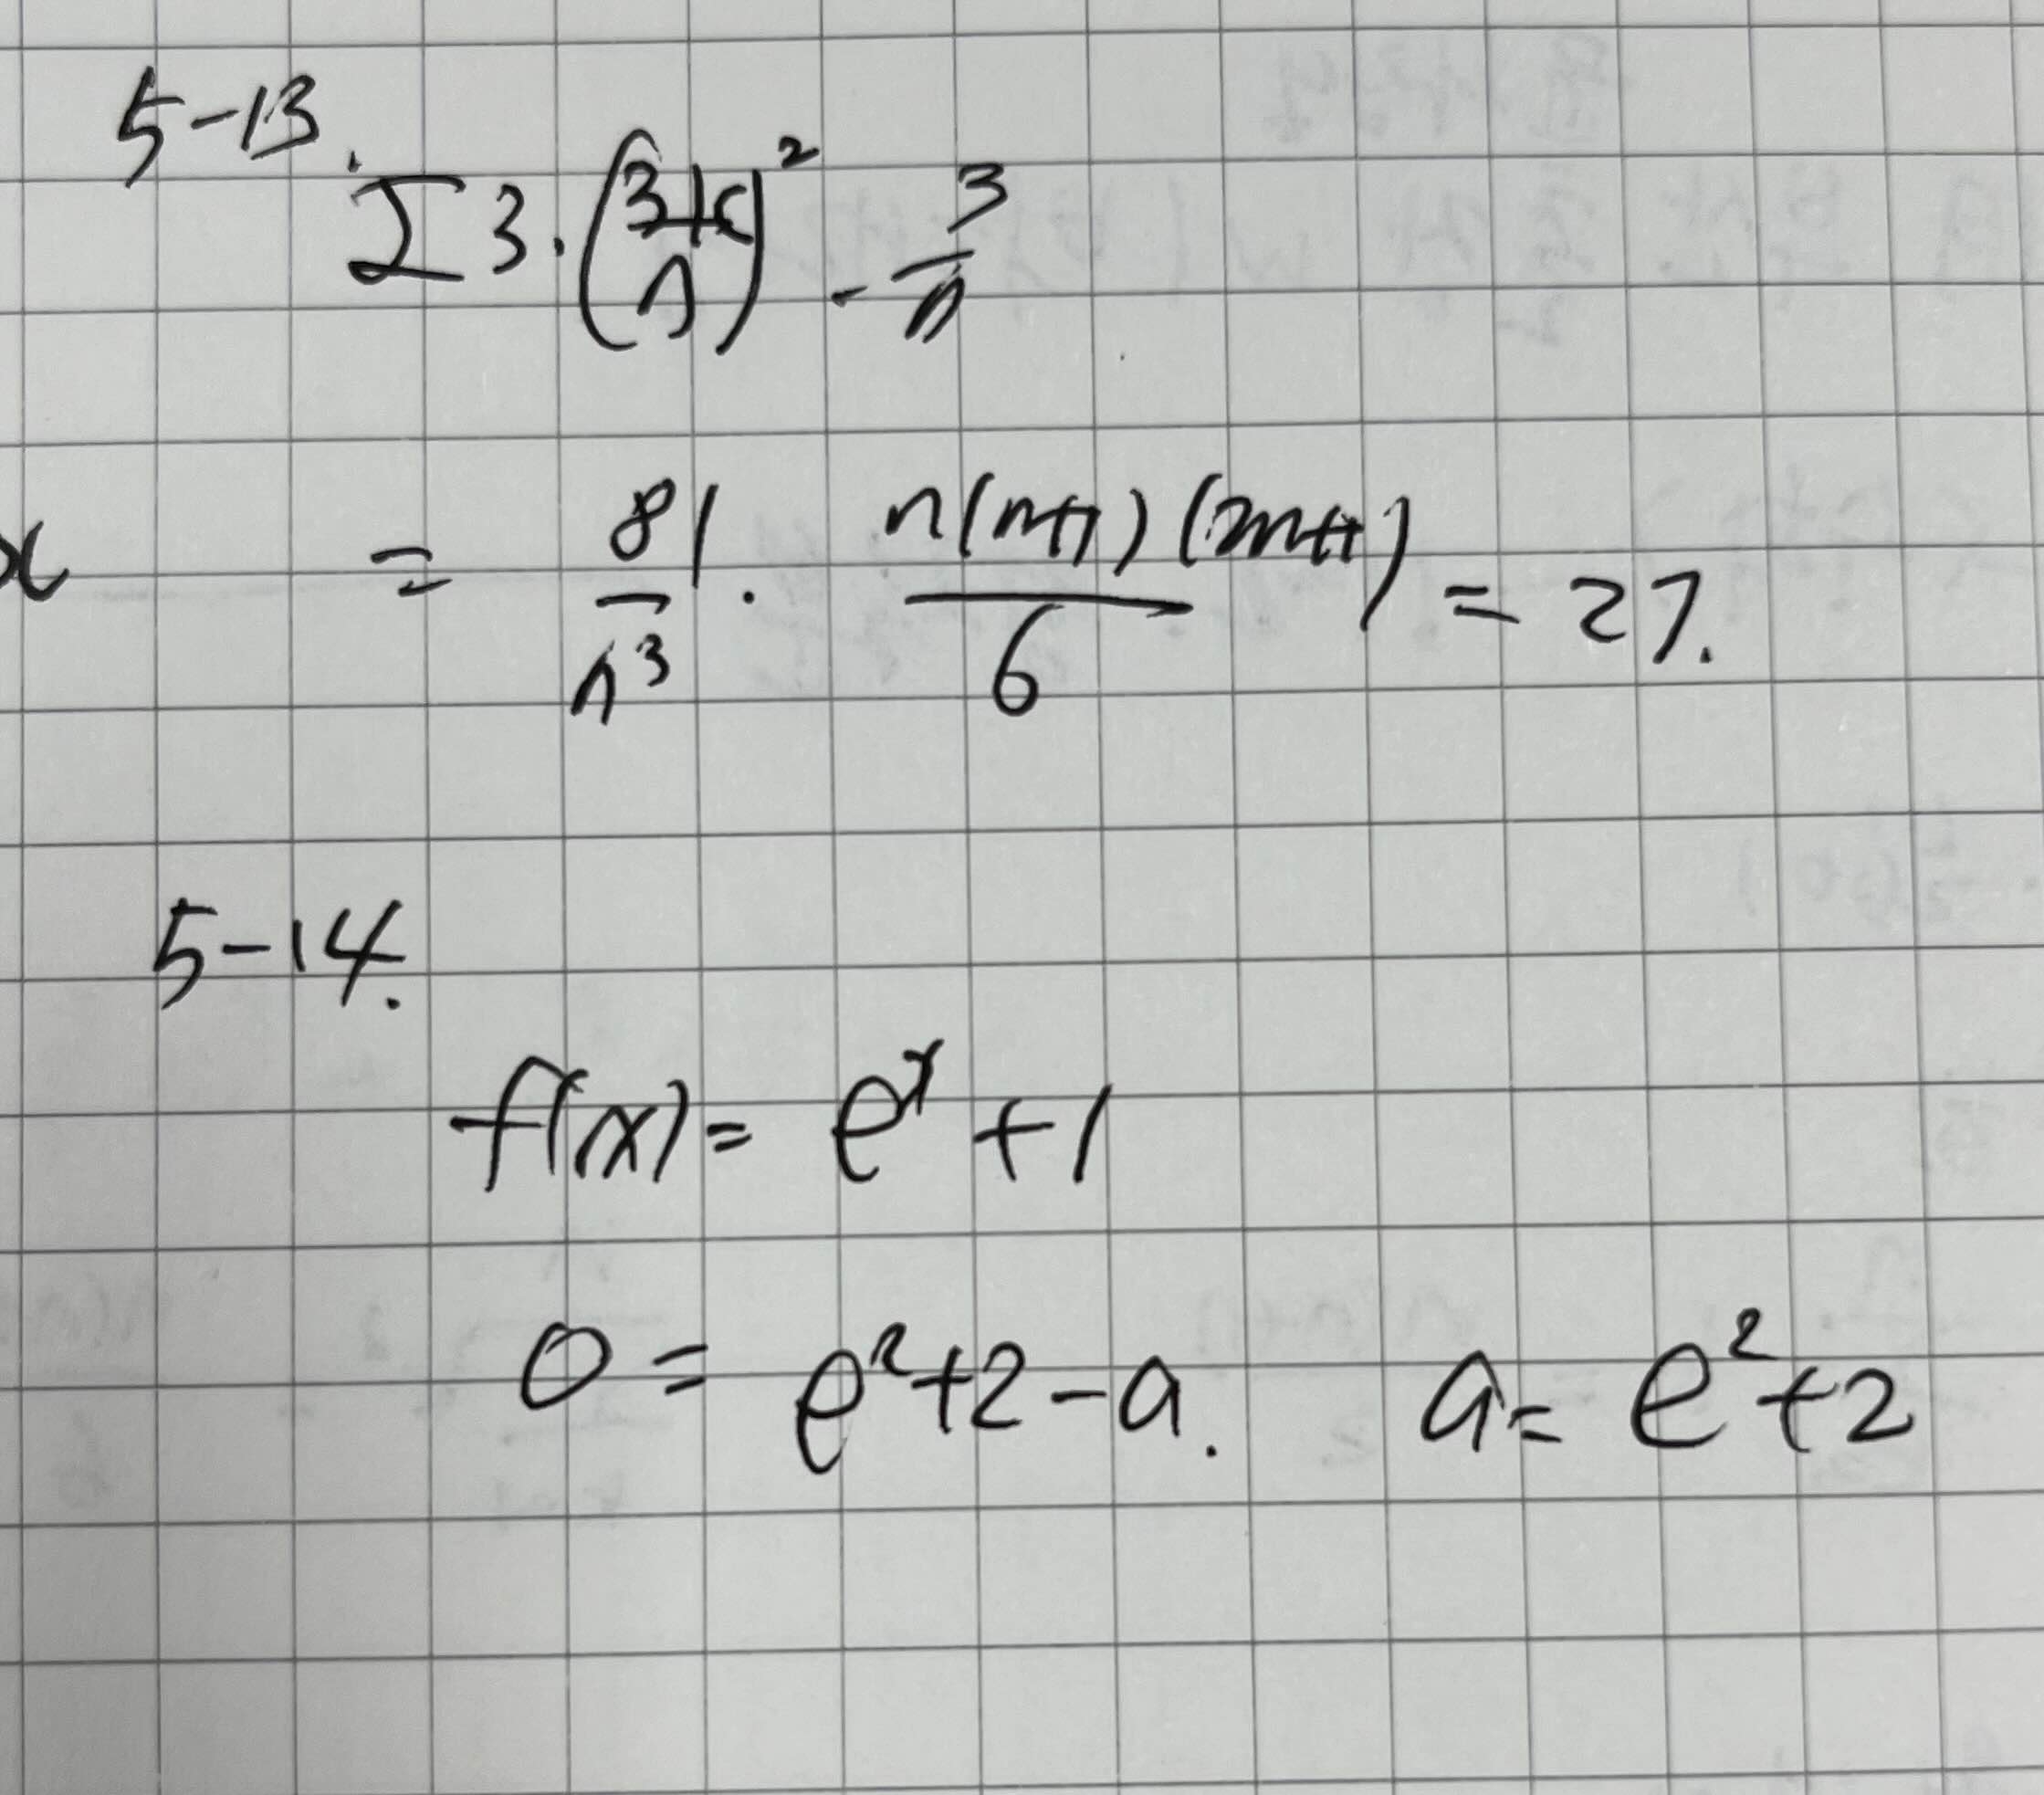 5-13.
Σ3·(3k/n)² · 3/n
x
= 81/n³ · n(n+1)(2n+1)/6 = 27.
5-14.
f(x) = eˣ + 1
0 = e² + 2 - a. a = e² + 2